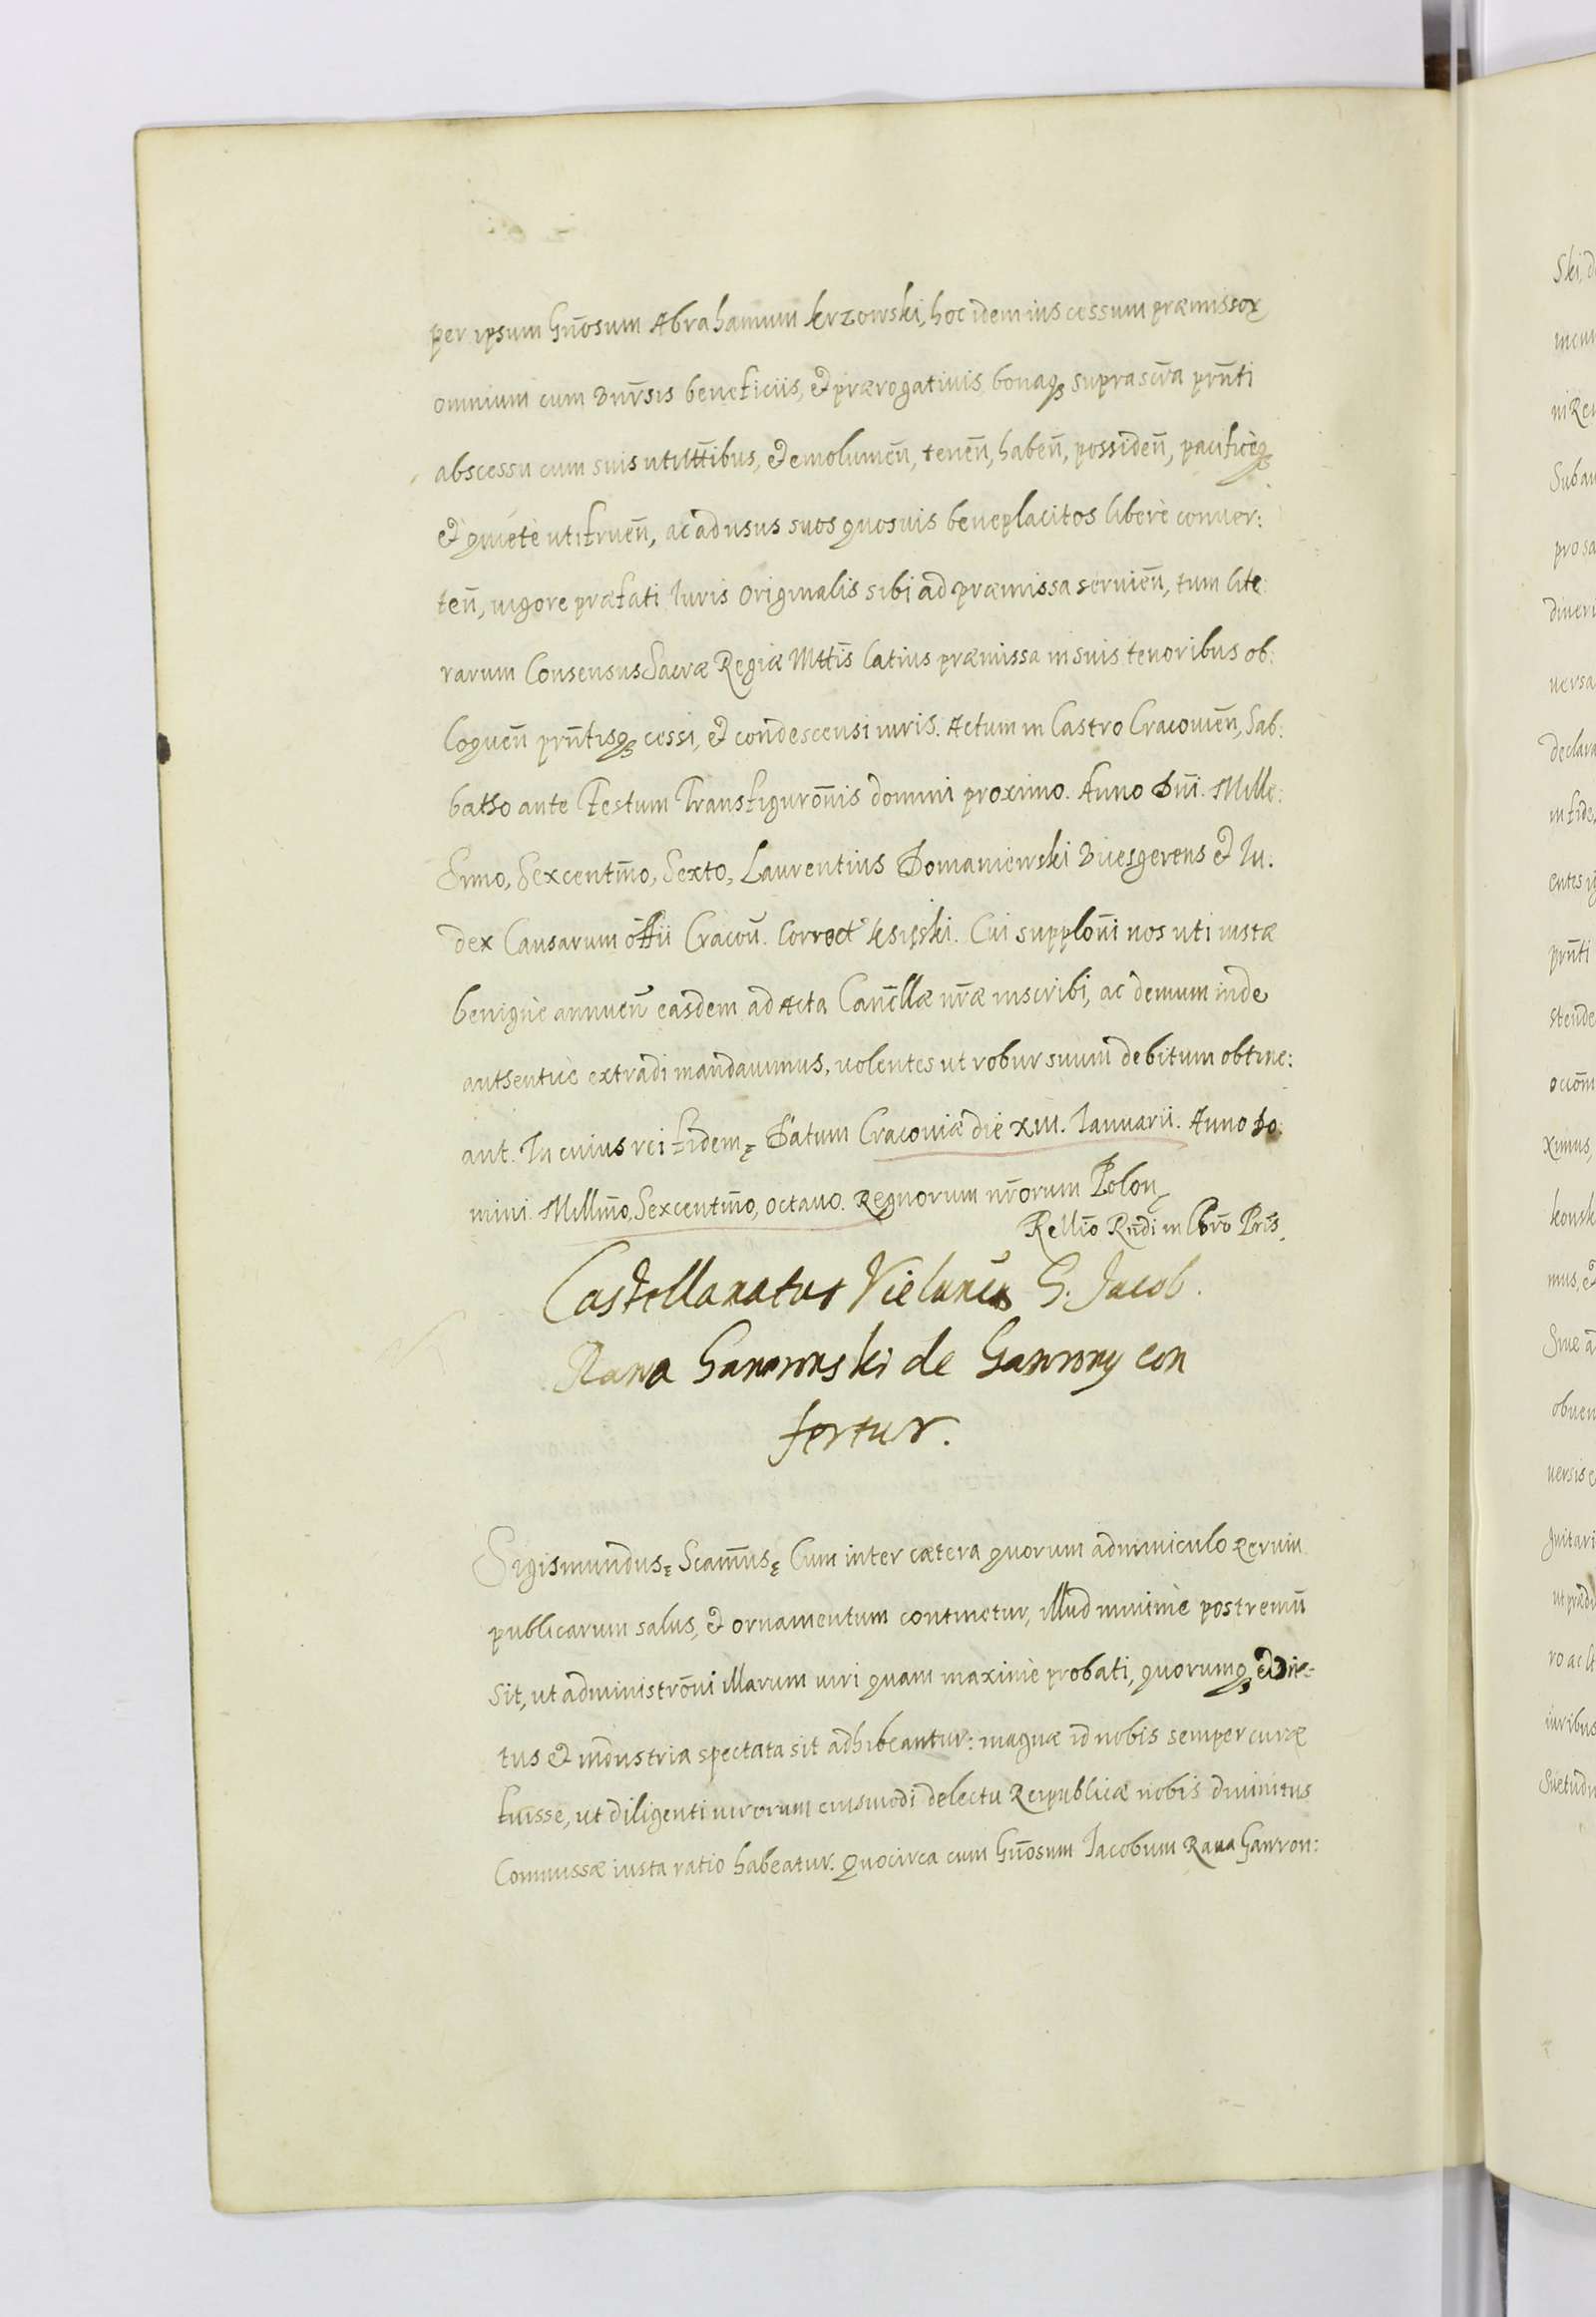 per ipsum Gn̄osum Abrahamum krzowski, hoc idem ius cessum præmissoꝝ
omnium cum vnīrsis beneficiis, et prærogativis, bonaqꝫ suprascr̄a prn̄ti
abscessu cum suis utilttibus, et emolumen̄, tenen̄, haben̄, possiden̄, pacificèqꝫ
et quietè utifruen̄, ac ad usus suos quosuis beneplacitos liberè conuer:
ten̄, uigore præfati Iuris originalis sibi ad præmissa seruien̄, tum lite:
rarum Consensus Sacræ Regiæ Mttis latius præmissa in suis tenoribus ob:
loquen̄ prn̄tisqꝫ cessi, et condescensi iuris. Actum in Castro Cracouien̄, Sab:
batho ante Festum Transfiguron̄is domini proximo. Anno Dn̄i. Mille:
Simo, Sexcentm̄o, Sexto, Laurentius Domaniewski Vicesgerens et Iu.
dex Causarum off̄ii Cracou̅. Correct Księski. Cui supplon̄i nos uti iustæ
benignè annuen̄ easdem ad Acta Cancllæ nr̄æ inscribi, ac demum inde
authenticè extradi mandauimus, uolentes ut robur suum debitum obtine:
ant. In cuius rei fidem ꝫ Datum Cracouiæ die XIII. Ianuarii. Anno Do:
mini. Millm̄o, Sexcentm̄o, octauo. Regnorum nr̄orum Polon
Rellīo Rn̄di in Chro Pris.
Castellanatus Vielunen̄ G. Jacob.
Rawa Gawronski de Gawrony con
fertur.
Sigismundus ꝫ Scam̄us ꝫ Cum inter cætera quorum adminiculo rerum
publicarum salus, et ornamentum continetur, illud minimè postremū
sit, ut administron̄i illarum uiri quam maximè probati, quorumqꝫ et vir=
tus et industria spectata sit adhibeantur: magnæ id nobis semper curæ
fuisse, ut diligenti uirorum eiusmodi delectu Reipublicæ nobis diuinitus
Commissæ iusta ratio habeatur. Quocirca cum Gn̄osum Iacobum Raua Gawron: